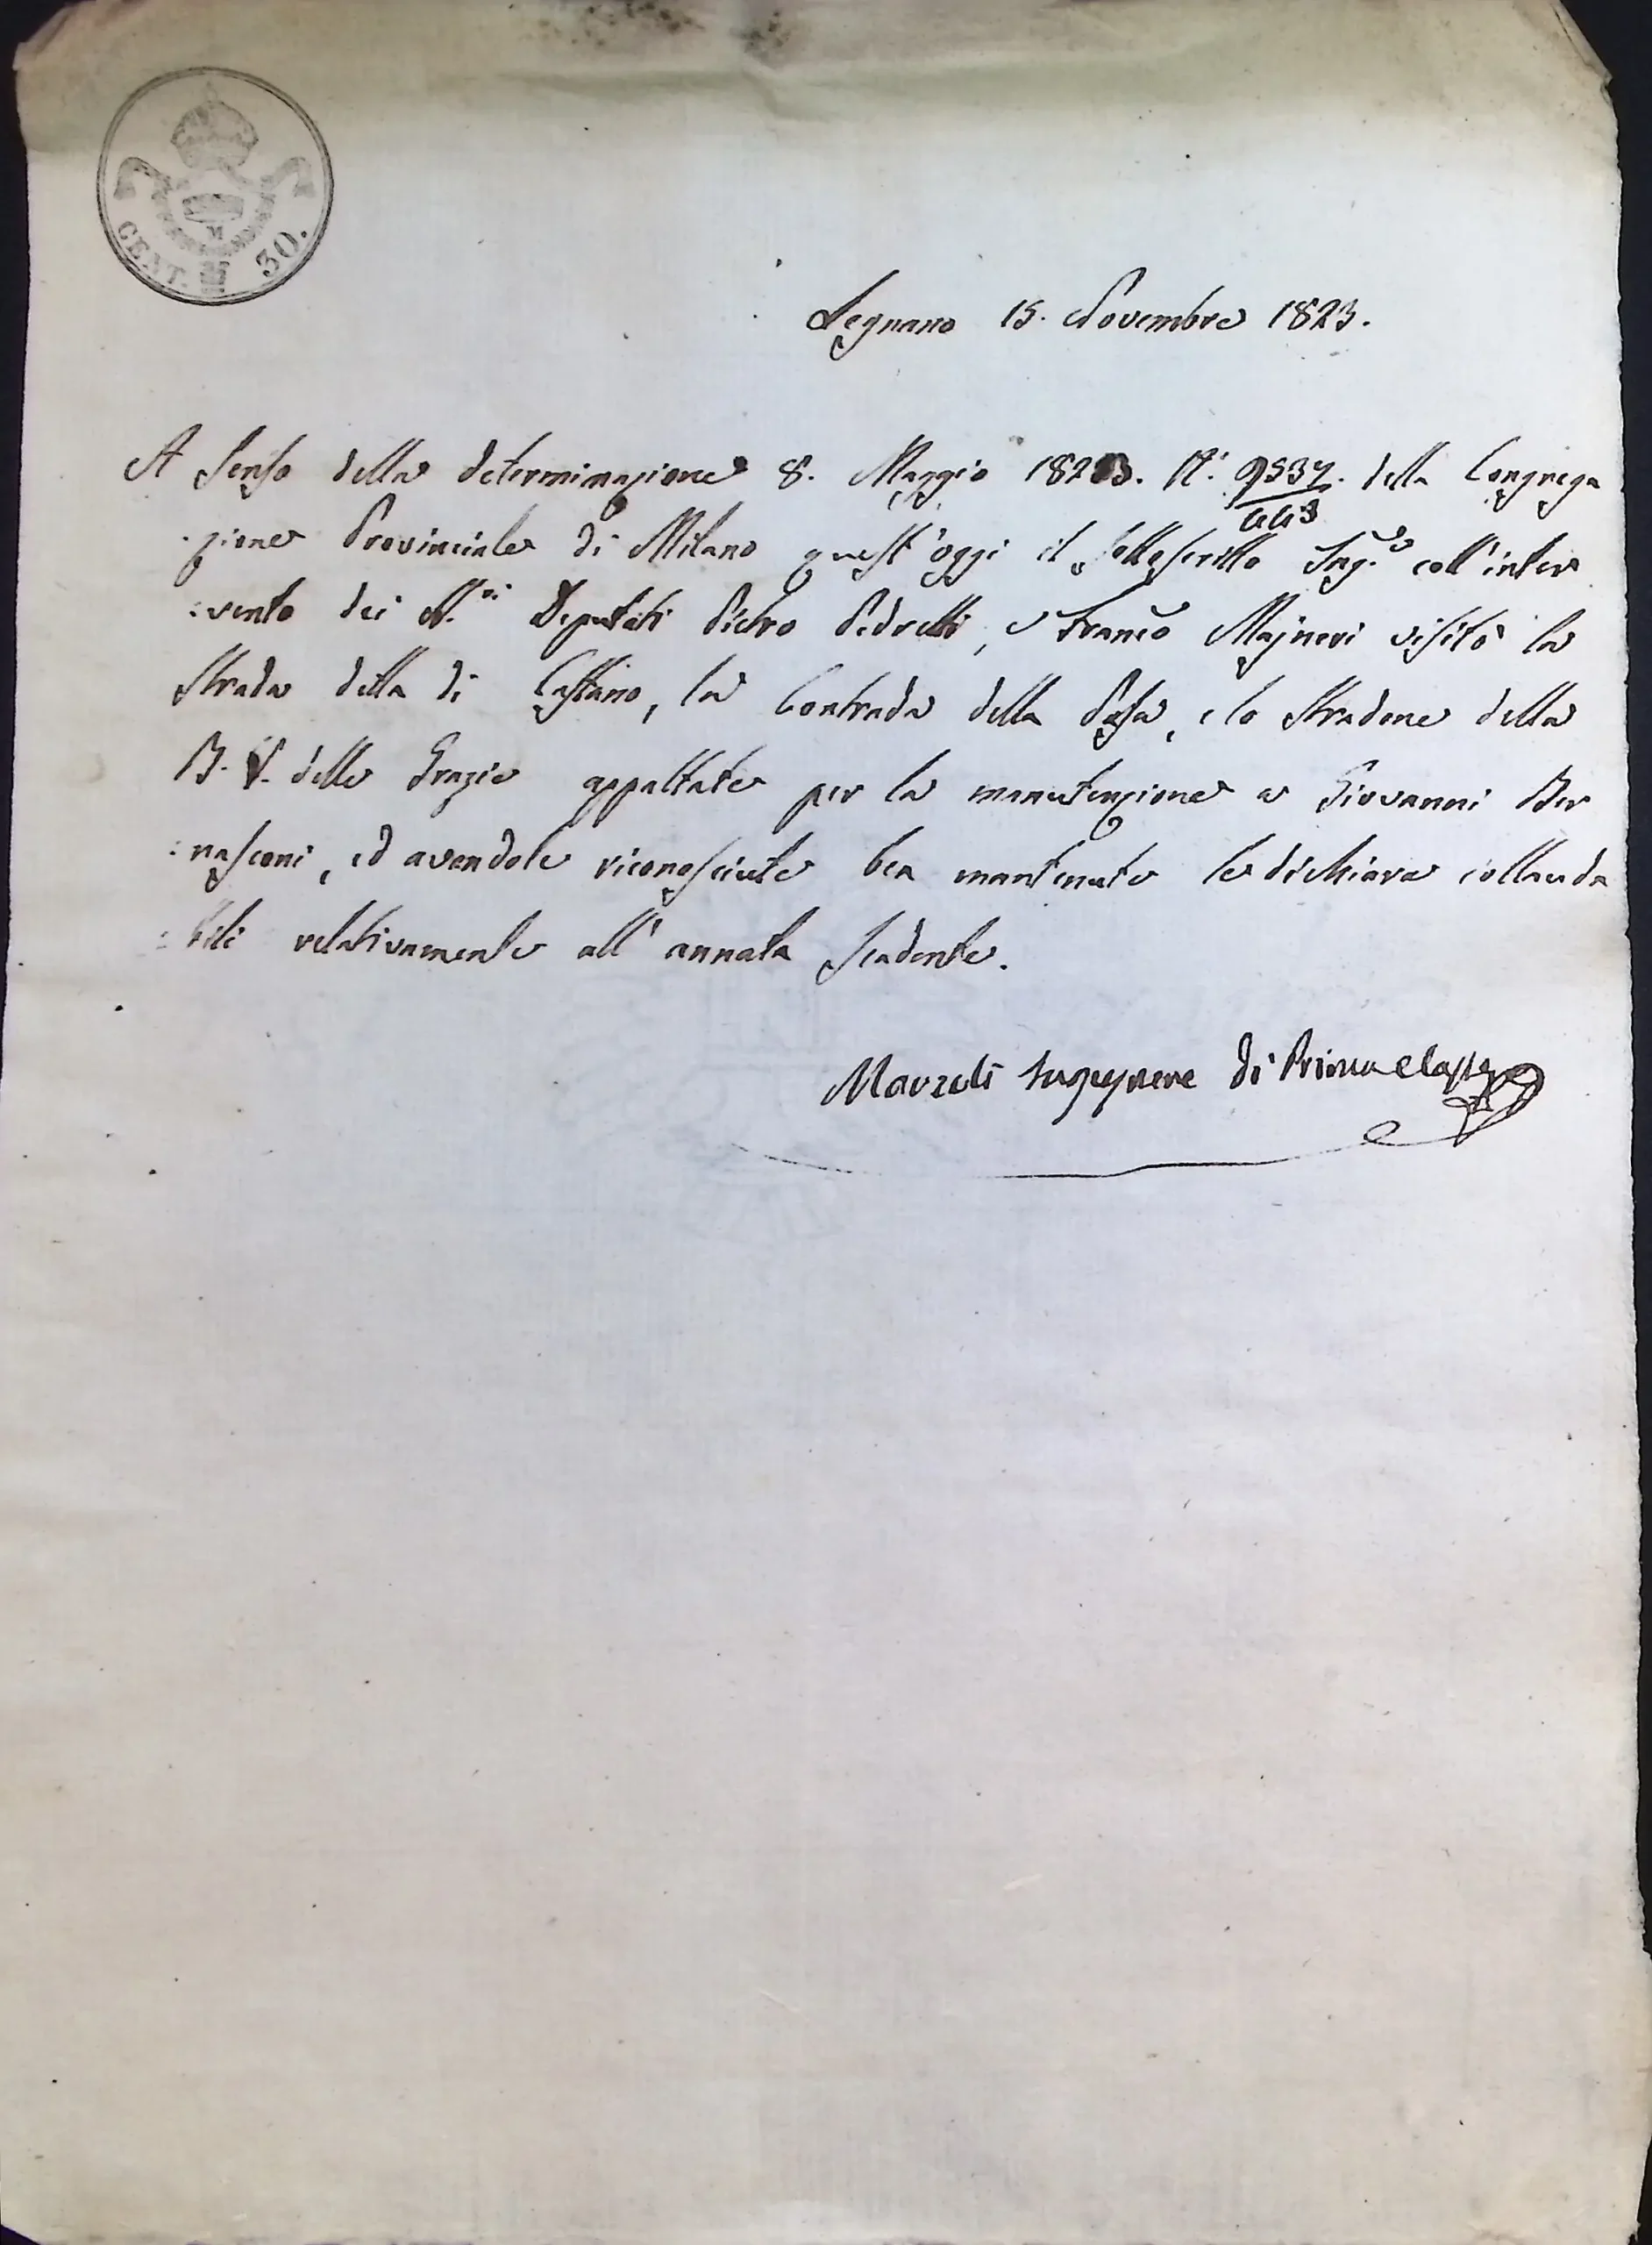 CENT. 30.
Legnano 15. Novembre 1823.
A senso della determinazione 8. Maggio 1823. N.° 9537. della Congrega
:zione Provinciale di Milano quest'oggi il sottoscritto Ing.e coll'inter
:vento dei Deputati Pietro Pedretti, e Fran.co Majneri visitò la
strada detta di Castano, la Contrada della , e lo stradone della
B. V. delle Grazie appaltate per la manutenzione a Giovanni Ber
:nasconi, ed avendole riconosciute ben mantenute le dichiara collauda
:bili relativamente all'annata scadente.
Ingegnere di Prima Classe